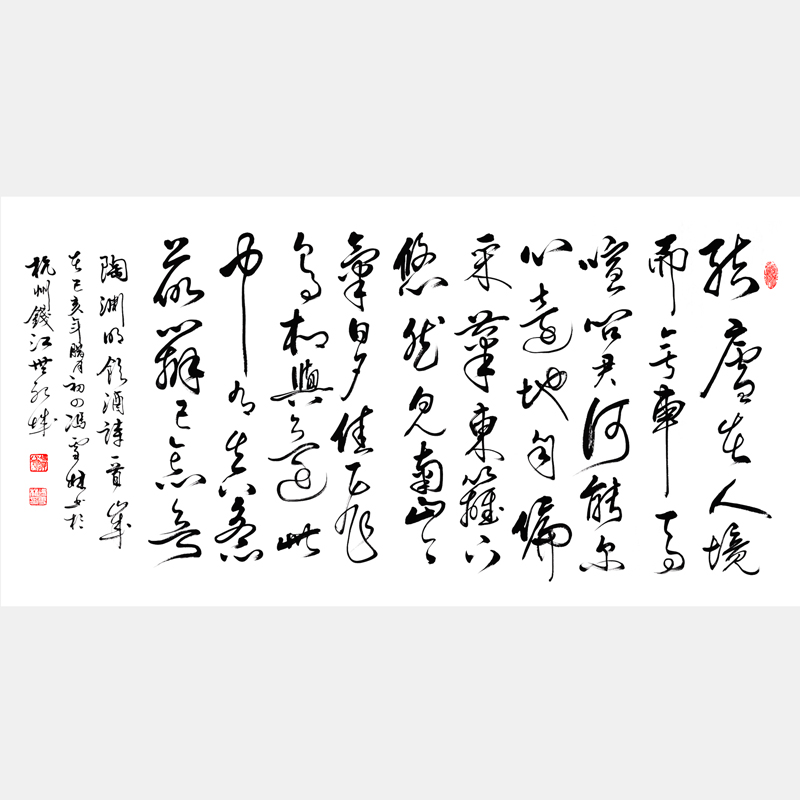 結廬在人境
而無車馬
喧問君何能尔
心遠地自偏
采菊東籬下
悠然見南山〻
氣日夕佳飛
鳥相與還此
中有真意
欲辯已忘言
陶淵明飲酒詩一首歲
在己亥年臘月初四馮雪林書於
杭州錢江世紀城